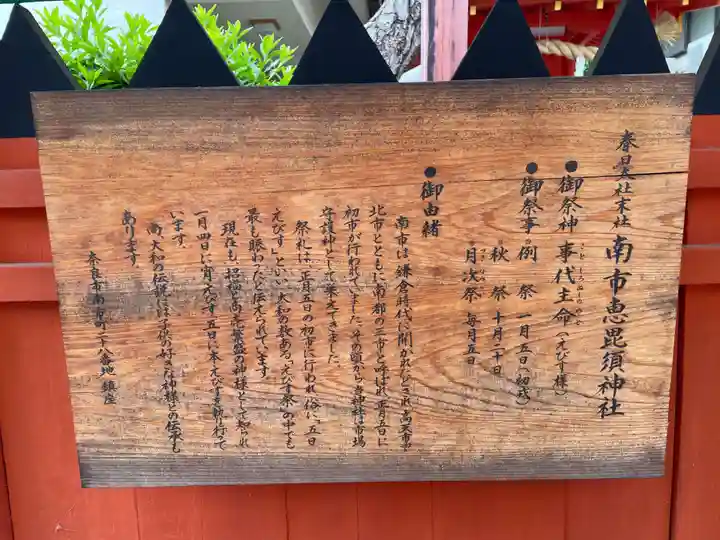 春日大社末社 南市恵毘須神社
●御祭神 事代主命(えびす様)
ことしろぬしのみこと
●御祭事 例祭 一月五日(初戎)
秋祭 十月二十日
月次祭 毎月五日
つきなみ
●御由緒
南市は鎌倉時代に開かれたとされ、高天市や
北市とともに南都の三市と呼ばれ、正月五日に
初市が行われていました。その頃から当神社は市場
守護神として栄えてきました。
祭礼は、正月五日の初市に行われ、俗に「五日
えびす」といい、大和の数ある「えびす祭」の中でも
最も賑わったと伝えられています。
現在も、招福と商売繁盛の神様として知られ
一月四日に宵えびす、五日に本えびすを執り行って
います。
尚、大和の伝説には子供の好きな神様との伝承も
あります。
奈良市南市町二十八番地 鎮座